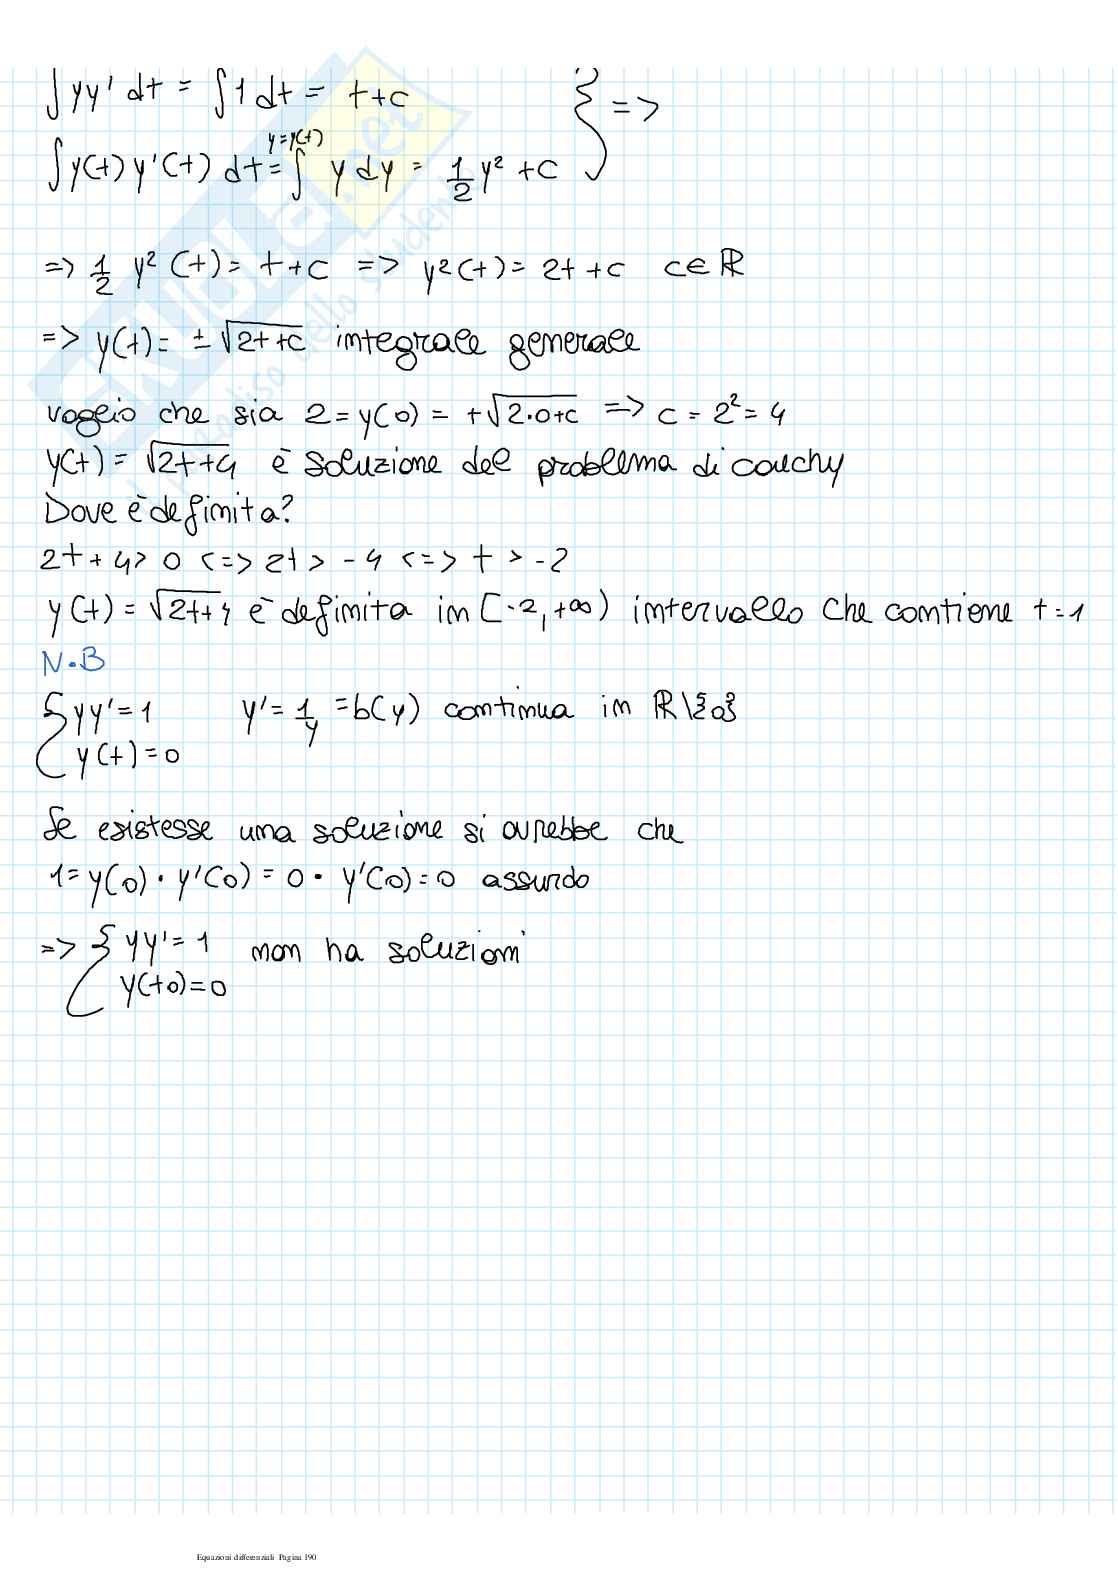 ∫yy' dt = ∫1 dt = t+c } =>
∫y(t) y'(t) dt = ∫ y dy = 1/2 y² + c
y=y(t)
=> 1/2 y²(t) = t+c => y²(t) = 2t+c c∈ℝ
=> y(t) = ±√2t+c integrale generale
voglio che sia 2 = y(0) = +√2·0+c => c = 2² = 4
y(t) = √2t+4 è soluzione del problema di cauchy
Dove è definita?
2t+4 > 0 <=> 2t > -4 <=> t > -2
y(t) = √2t+4 è definita in [-2, +∞) intervallo che contiene t=1
N.B
{ yy' = 1 y' = 1/y = b(y) continua in ℝ\{0}
y(t) = 0
Se esistesse una soluzione si avrebbe che
1 = y(0) · y'(0) = 0 · y'(0) = 0 assurdo
=> { yy' = 1 non ha soluzioni
y(t0) = 0
SKUOLA.net
paradiso dello studente
Equazioni differenziali Pagina 190